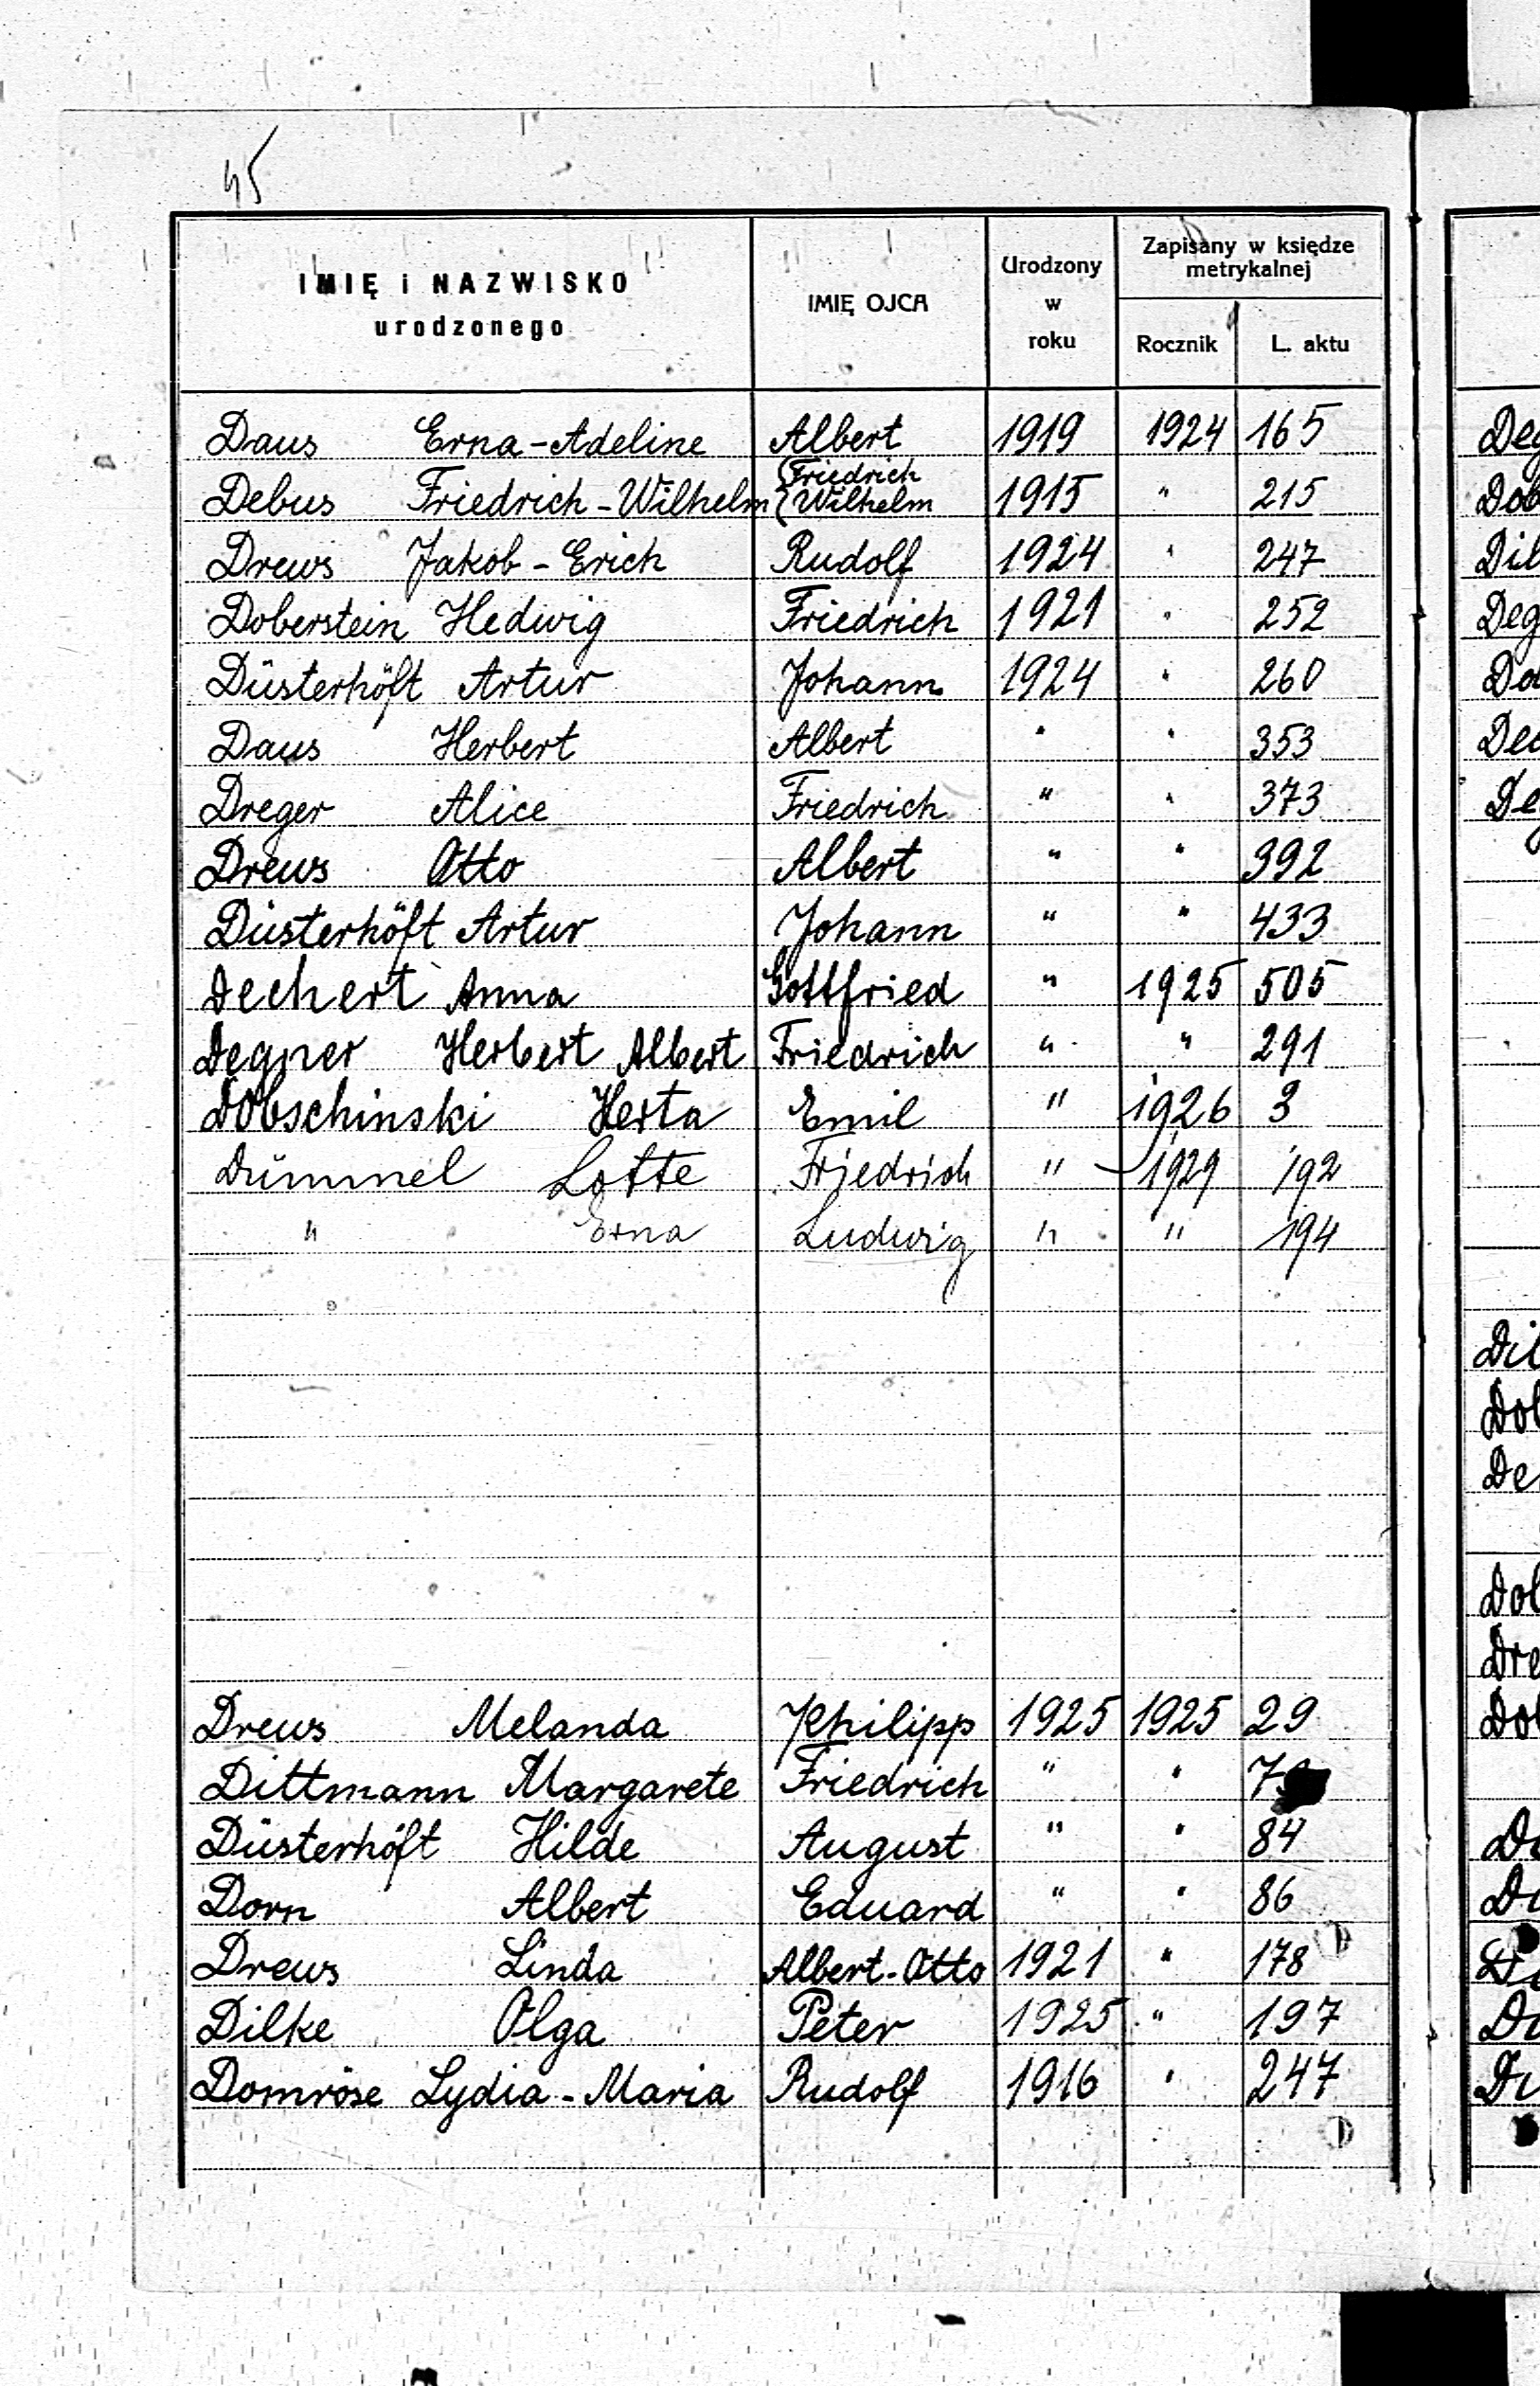 45
IMIĘ i NAZWISKO
urodzonego
IMIĘ OJCA
Urodzony
w
roku
Zapisany w księdze
metrykalnej
Rocznik L. aktu
Daus Erna-Adeline Albert 1919 1924 165
Debus Friedrich-Wilhelm (Friedrich Wilhelm 1915 " 215
Drews Jakob-Erich Rudolf 1924 " 247
Doberstein Hedwig Friedrich 1921 " 252
Düsterhöft Artur Johann 1924 " 260
Daus Herbert Albert " " 353
Dreger Alice Friedrich " " 373
Drews Otto Albert " " 392
Düsterhöft Artur Johann " " 433
Dechert Anna Gottfried " 1925 505
Degner Herbert Albert Friedrich " " 291
Dobschinski Herta Emil " 1926 3
Dümmel Lotte Friedrich " 1929 192
" Erna Ludwig " " 194
Drews Melanda Philipp 1925 1925 29
Dittmann Margarete Friedrich " "
Düsterhöft Hilde August " " 84
Dorn Albert Eduard " " 86
Drews Linda Albert-Otto 1921 " 178
Dilke Olga Peter 1925 " 197
Domröse Lydia-Maria Rudolf 1916 " 247
Deg
Dob
Dil
Deg
Do
De
De
Dil
Dob
De
Dob
Dre
Dob
D
D
D
D
D